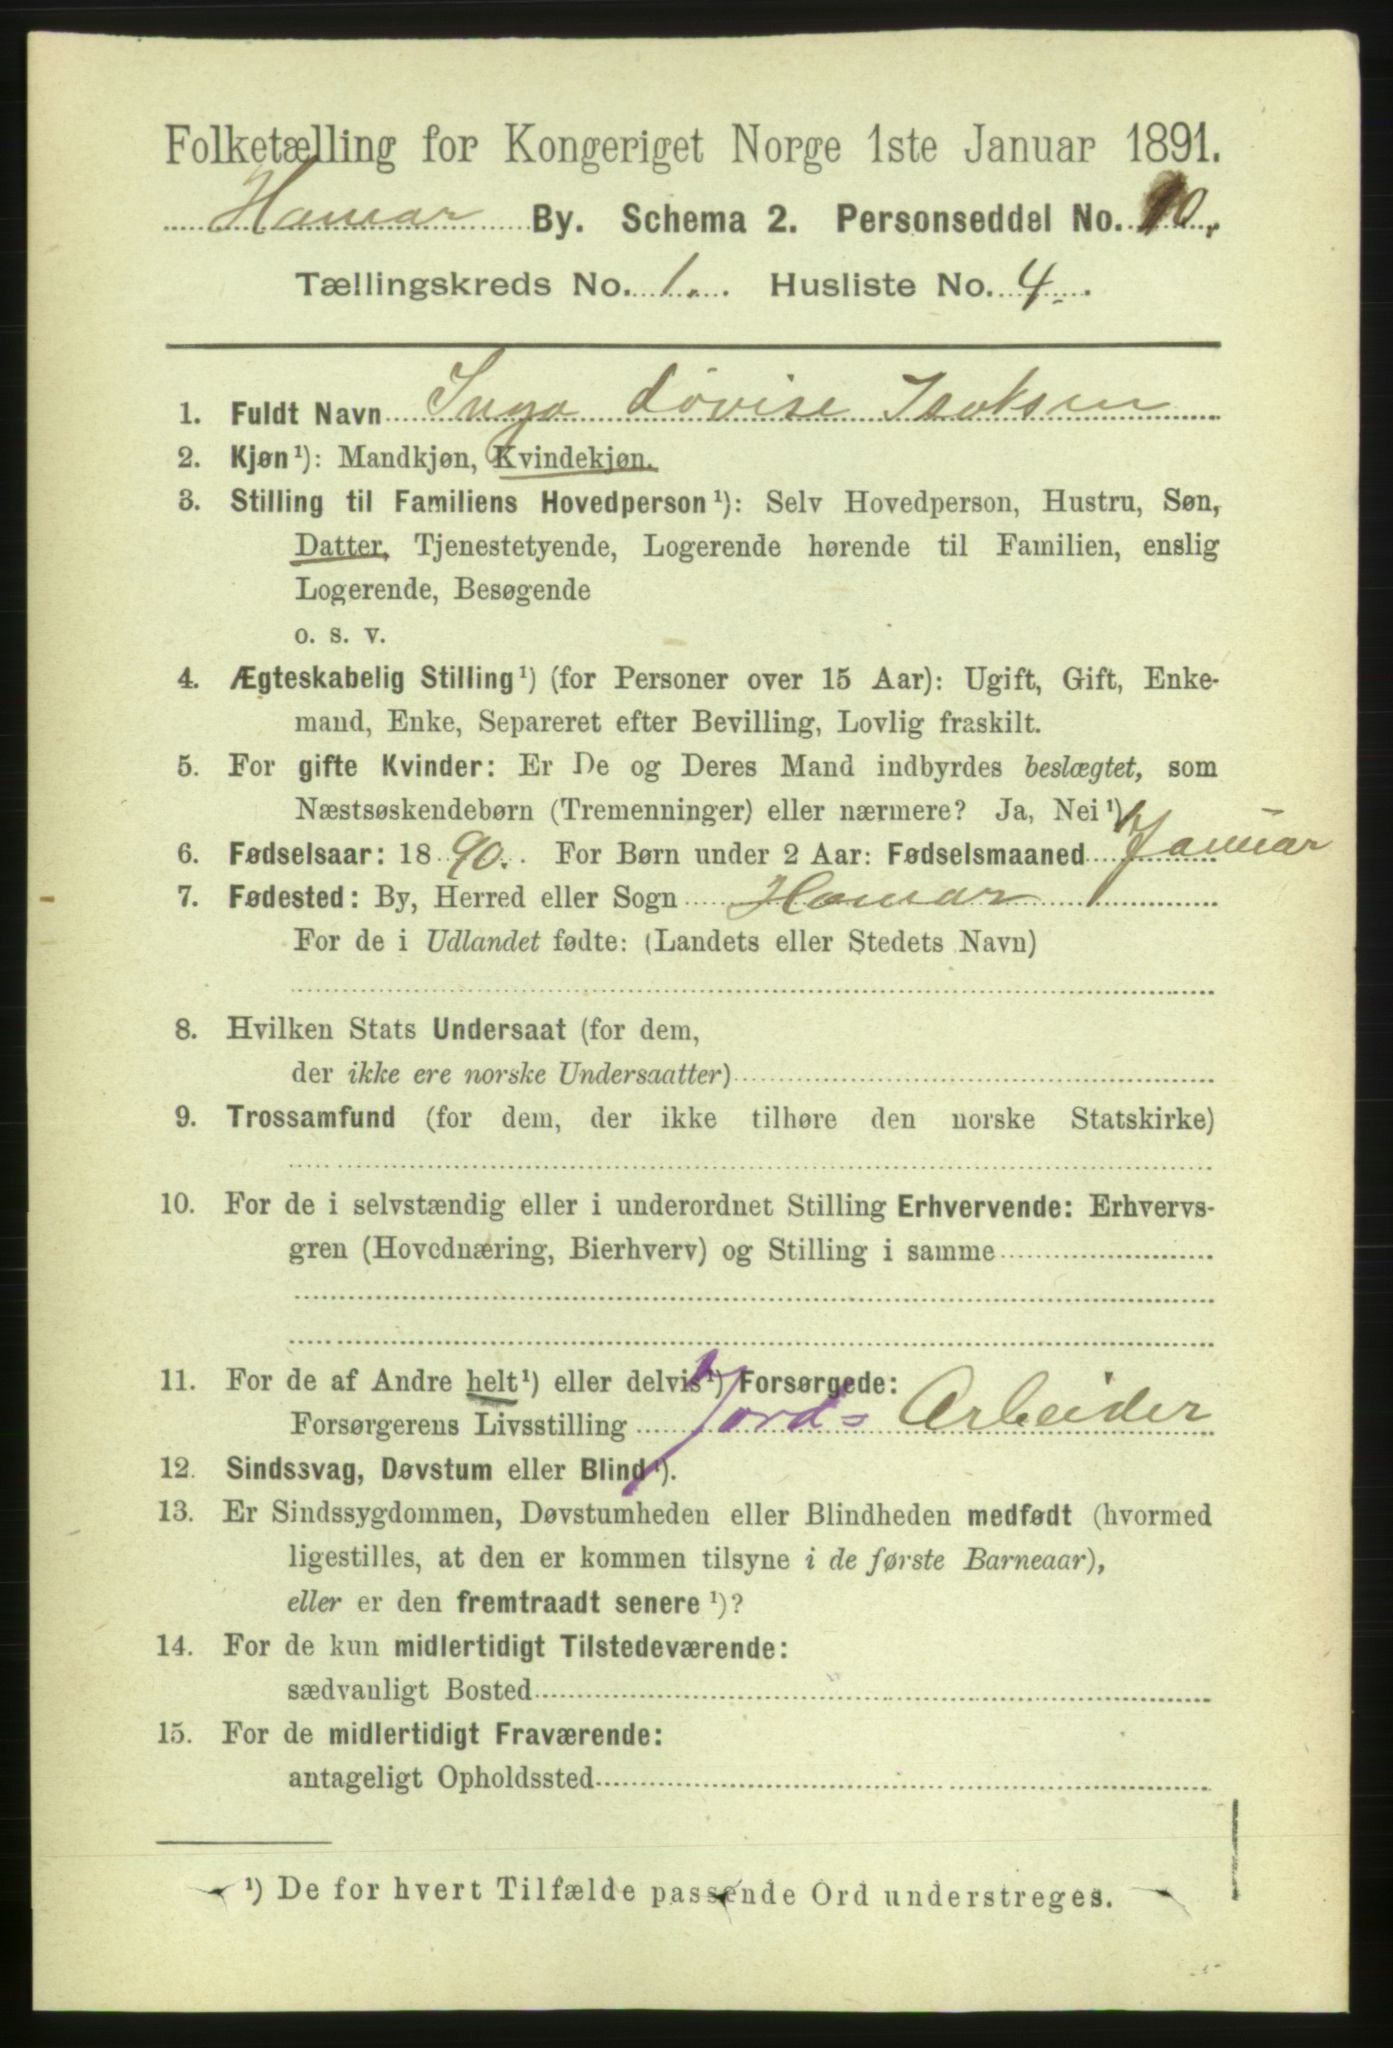 Folketælling for Kongeriget Norge 1ste Januar 1891.
Hamar By. Schema 2. Personseddel No. 10.
Tællingskreds No. 1. Husliste No. 4.
1. Fuldt Navn Inga Lovise Isaksen
2. Kjøn¹): Mandkjøn, Kvindekjøn.
3. Stilling til Familiens Hovedperson¹): Selv Hovedperson, Hustru, Søn,
Datter, Tjenestetyende, Logerende hørende til Familien, enslig
Logerende, Besøgende
o. s. v.
4. Ægteskabelig Stilling¹) (for Personer over 15 Aar): Ugift, Gift, Enke-
mand, Enke, Separeret efter Bevilling, Lovlig fraskilt.
5. For gifte Kvinder: Er De og Deres Mand indbyrdes beslægtet, som
Næstsøskendebørn (Tremenninger) eller nærmere? Ja, Nei¹)
6. Fødselsaar: 1890. For Børn under 2 Aar: Fødselsmaaned Januar
7. Fødested: By, Herred eller Sogn Hamar
For de i Udlandet fødte: (Landets eller Stedets Navn)
8. Hvilken Stats Undersaat (for dem,
der ikke ere norske Undersaatter)
9. Trossamfund (for dem, der ikke tilhøre den norske Statskirke)
10. For de i selvstændig eller i underordnet Stilling Erhvervende: Erhvervs-
gren (Hovednæring, Bierhverv) og Stilling i samme
11. For de af Andre helt¹) eller delvis¹) Forsørgede:
Forsørgerens Livsstilling Jord- Arbeider
12. Sindssvag, Døvstum eller Blind¹).
13. Er Sindssygdommen, Døvstumheden eller Blindheden medfødt (hvormed
ligestilles, at den er kommen tilsyne i de første Barneaar),
eller er den fremtraadt senere¹)?
14. For de kun midlertidigt Tilstedeværende:
sædvanligt Bosted
15. For de midlertidigt Fraværende:
antageligt Opholdssted
¹) De for hvert Tilfælde passende Ord understreges.